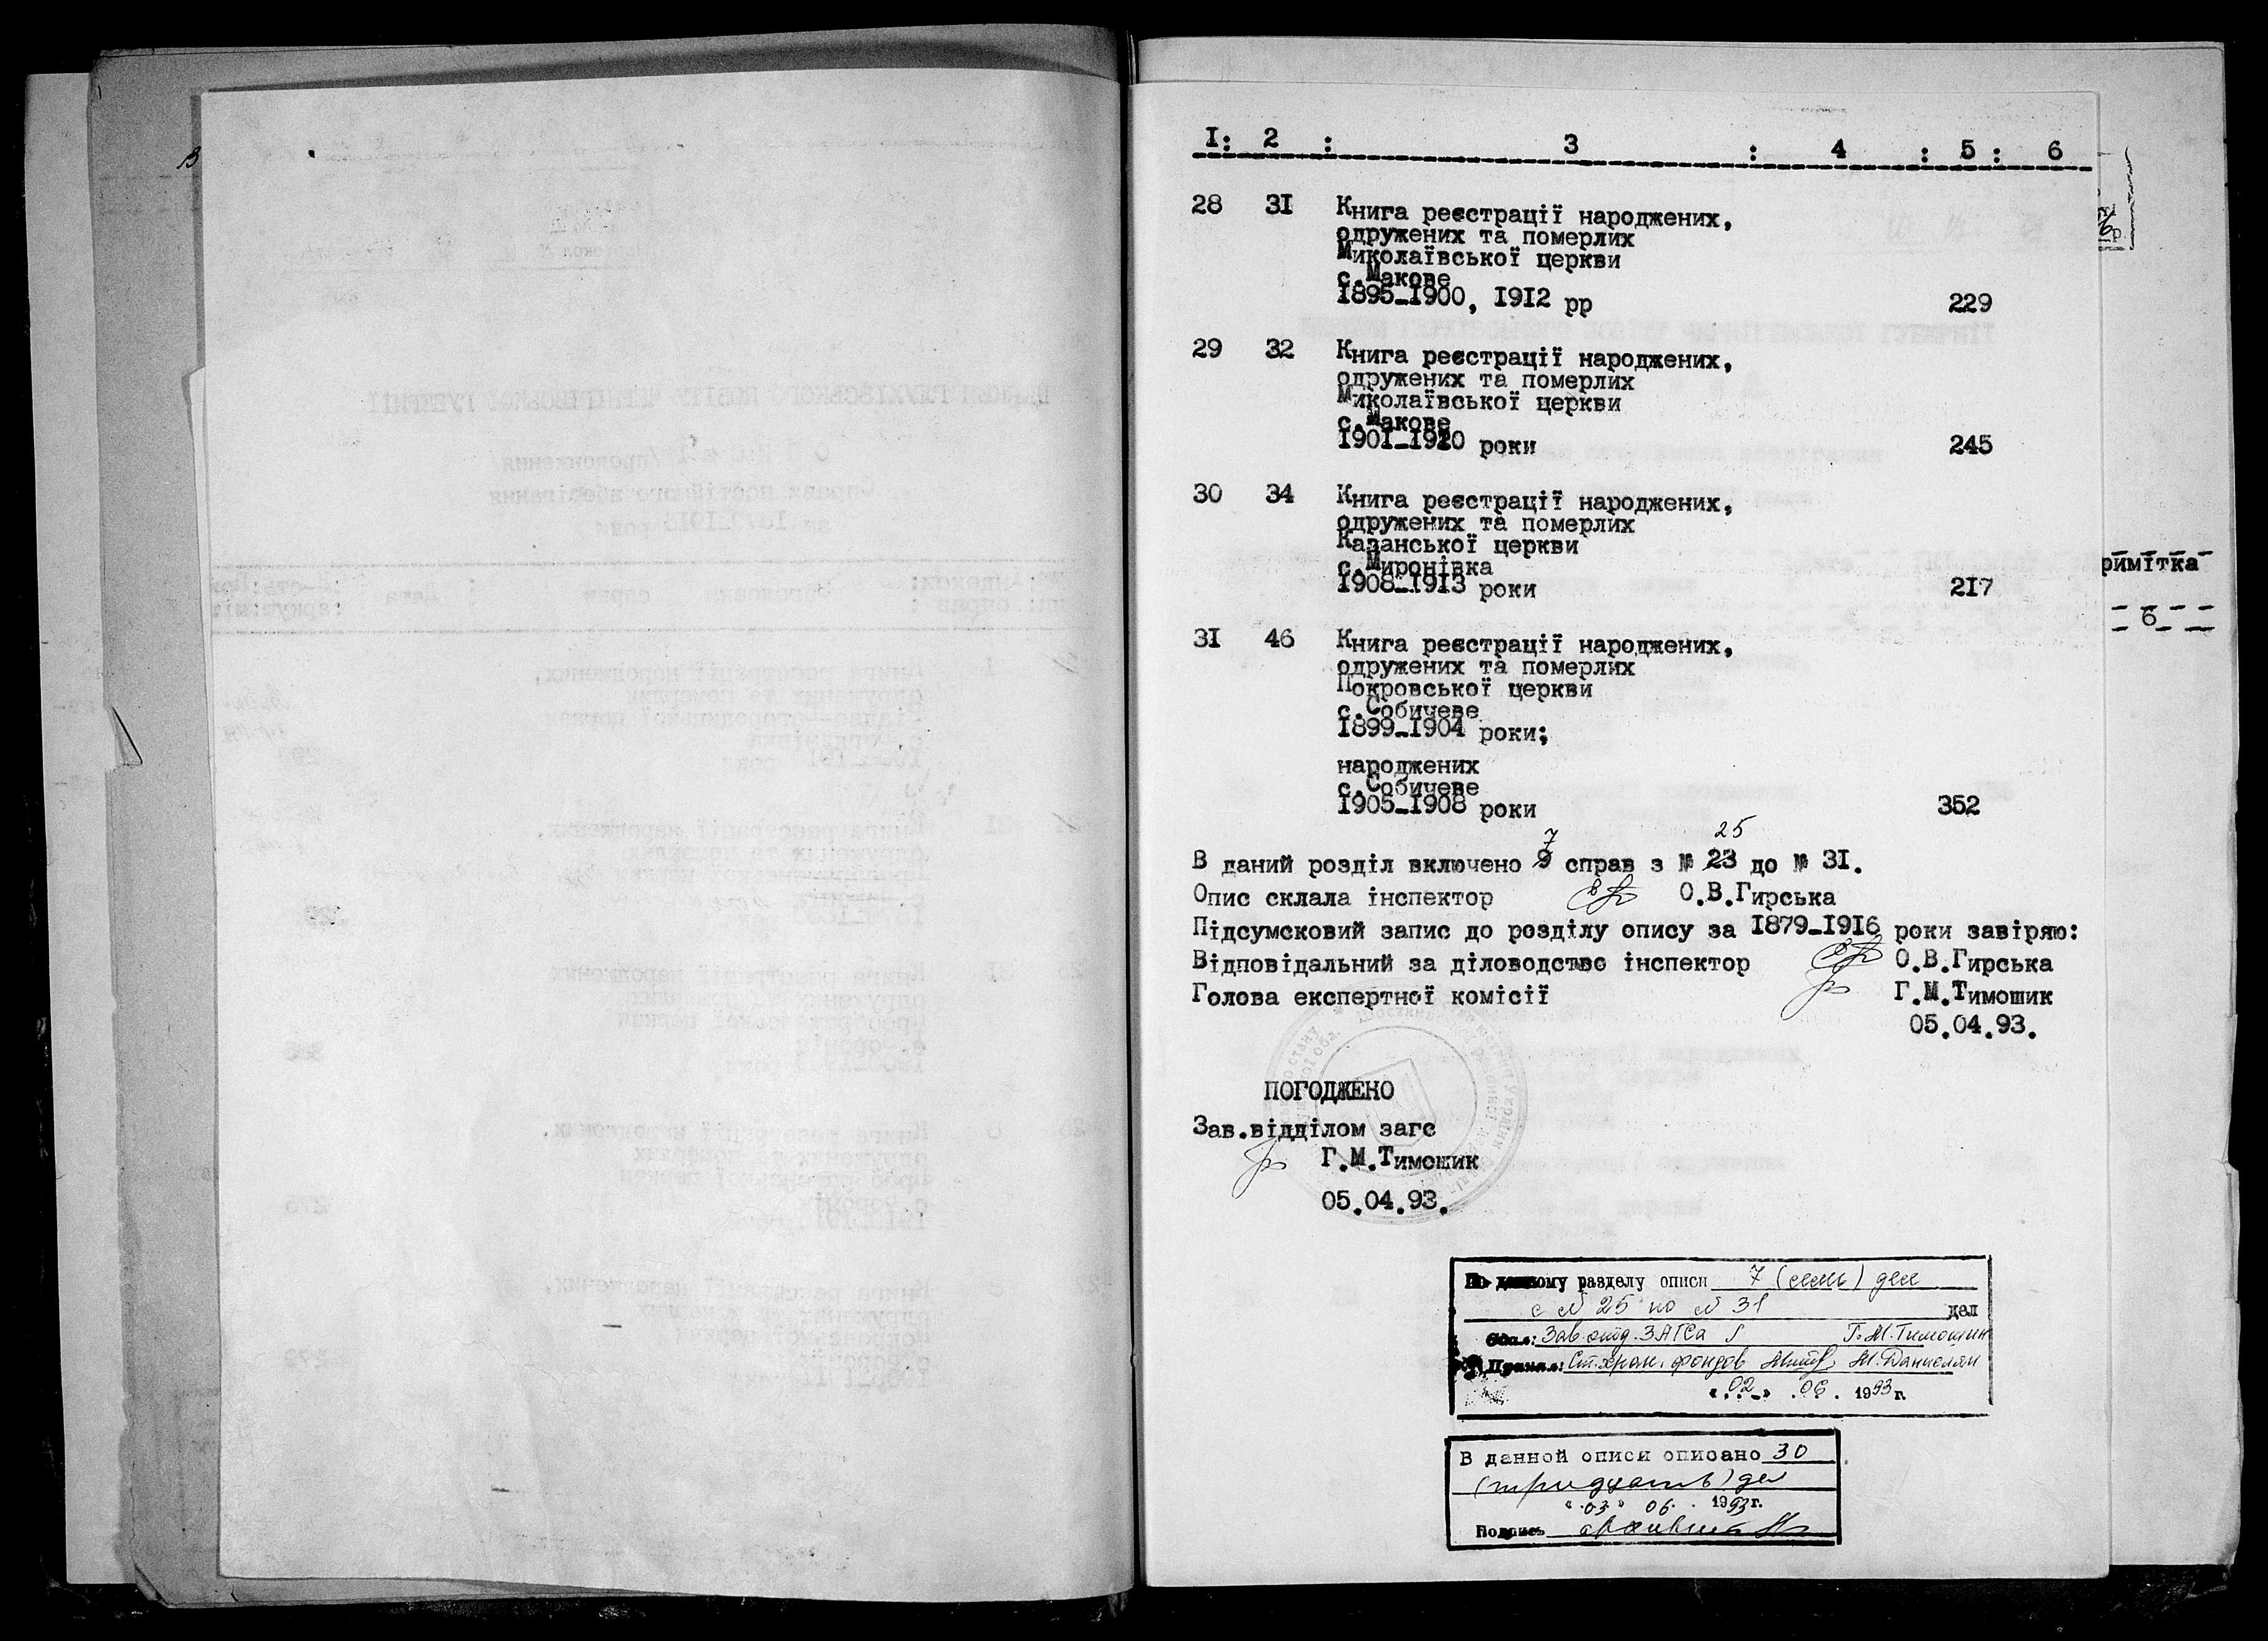 I: 2 : 3 : 4 : 5 : 6
28 31 Книга реєстрації народжених,
одружених та померлих
Миколаївської церкви
с.Макове
1895-1900, 1912 рр 229
29 32 Книга реєстрації народжених,
одружених та померлих
Миколаївської церкви
с.Макове
1901-1910 роки 245
30 34 Книга реєстрації народжених,
одружених та померлих
Казанської церкви
с.Миронівка
1908-1913 роки 217
31 46 Книга реєстрації народжених,
одружених та померлих
Покровської церкви
с.Собичеве
1899-1904 роки;
народжених
с.Собичеве
1905-1908 роки 352
7 25
В даний розділ включено 9 справ з № 23 до № 31.
Опис склала інспектор О.В.Гирська
Підсумсковий запис до розділу опису за 1879-1916 роки завіряю:
Відповідальний за діловодство інспектор О.В.Гирська
Голова експертної комісії Г.М.Тимошик
05.04.93.
ПОГОДЖЕНО
Зав.відділом загс
Г.М.Тимошик
05.04.93.
По данному разделу описи 7 (семь) дел
с № 25 по № 31 дел
Сдал: Зав. отд. ЗАГСа Г.М.Тимошик
Принял: Ст. хран. фондов М.Даниелян
«02» 06. 1993 г.
В данной описи описано 30
(тридцать) дел
«03» 06. 1993 г.
Подпись
римітка
6